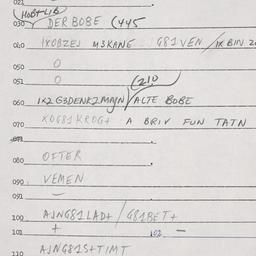 021
HOBT LIB
030 DER BOBE (445
040 1XOBZEJ M3KANE G81VEN / 1X BIN
050 0
051 0 (210
060 1X2 G3DENK2MAJN / ALTE BOBE
070 XOG81KROG+ A BRIV FUN TATN
071
080 OFTER
090 VEMEN
091 —
100 AJNG81LAD+ / G81BET+
101 + 102 —
110 AJNG81S+TIMT